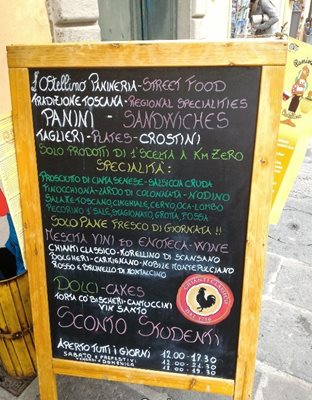 L'OSTELLINO PANINERIA - STREET FOOD
TRADIZIONE TOSCANA - REGIONAL SPECIALITIES
PANINI - SANDWICHES
TAGLIERI - PLATES - CROSTINI
SOLO PRODOTTI DI 1ª SCELTA A KM ZERO
SPECIALITÀ:
PROSCIUTTO DI CINTA SENESE - SALSICCIA CRUDA
FINOCCHIONA - LARDO DI COLONNATA - NODINO
SALAME TOSCANO, CINGHIALE, CERVO, OCA - LOMBO
PECORINO 1/2 SALE, STAGIONATO, GROTTA, FOSSA
SOLO PANE FRESCO DI GIORNATA !!
MESCITA VINI ED ENOTECA - WINE
CHIANTI CLASSICO - MORELLINO DI SCANSANO
BOLGHERI - CARMIGNANO - NOBILE MONTEPULCIANO
ROSSO E BRUNELLO DI MONTALCINO
DOLCI - CAKES
TORTA CO' BISCHERI - CANTUCCINI
VIN SANTO
CHIANTI CLASSICO
SCONTO STUDENTI
APERTO TUTTI I GIORNI 12.00 - 17.30
SABATO E PREFESTIVI 12.00 - 21.30
VENERDÌ E DOMENICA 12.00 - 19.30